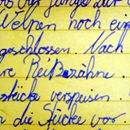 vor junge zur
Welpen noch ein
geschlossen. Nach
re Reißzähne.
stücke verspeisen.
n die Stücke vor.